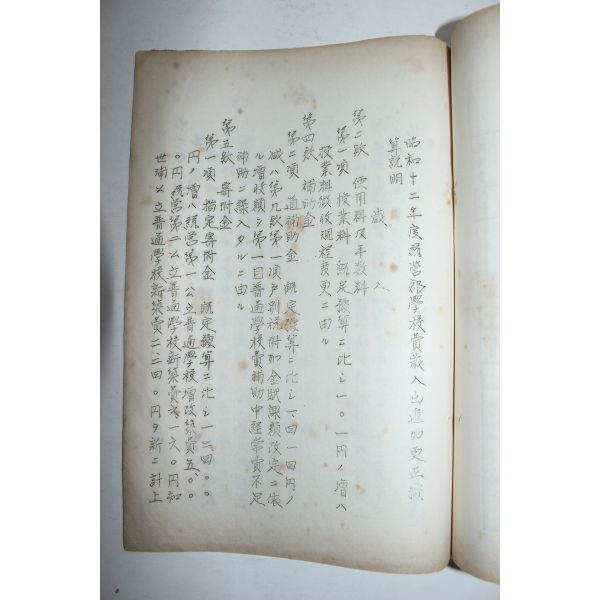 昭和十二年度統営郡学校費歳入出追加更正予
算説明
歳入
第二款 使用料及手数料
第一項 授業料 既定予算ニ比シ一〇一円ノ増ハ
授業料徴収規程変更ニ由ル
第四款 補助金
第二項 道補助金 既定予算ニ比シ一、四一四円ノ
減ハ第九款第一項戸別税附加金賦課額改定ニ依
ル増収額 第一目普通学校費補助中経常費不足
補助ニ繰入タルニ由ル
第五款 寄附金
第一項 指定寄附金 既定予算ニ比シ一二四〇〇
円ノ増ハ統営第一公立普通学校増改築費五、〇〇
〇円統営第二公立普通学校新築費六一六〇円知
世浦公立普通学校新築費二二四〇円ヲ新ニ計上